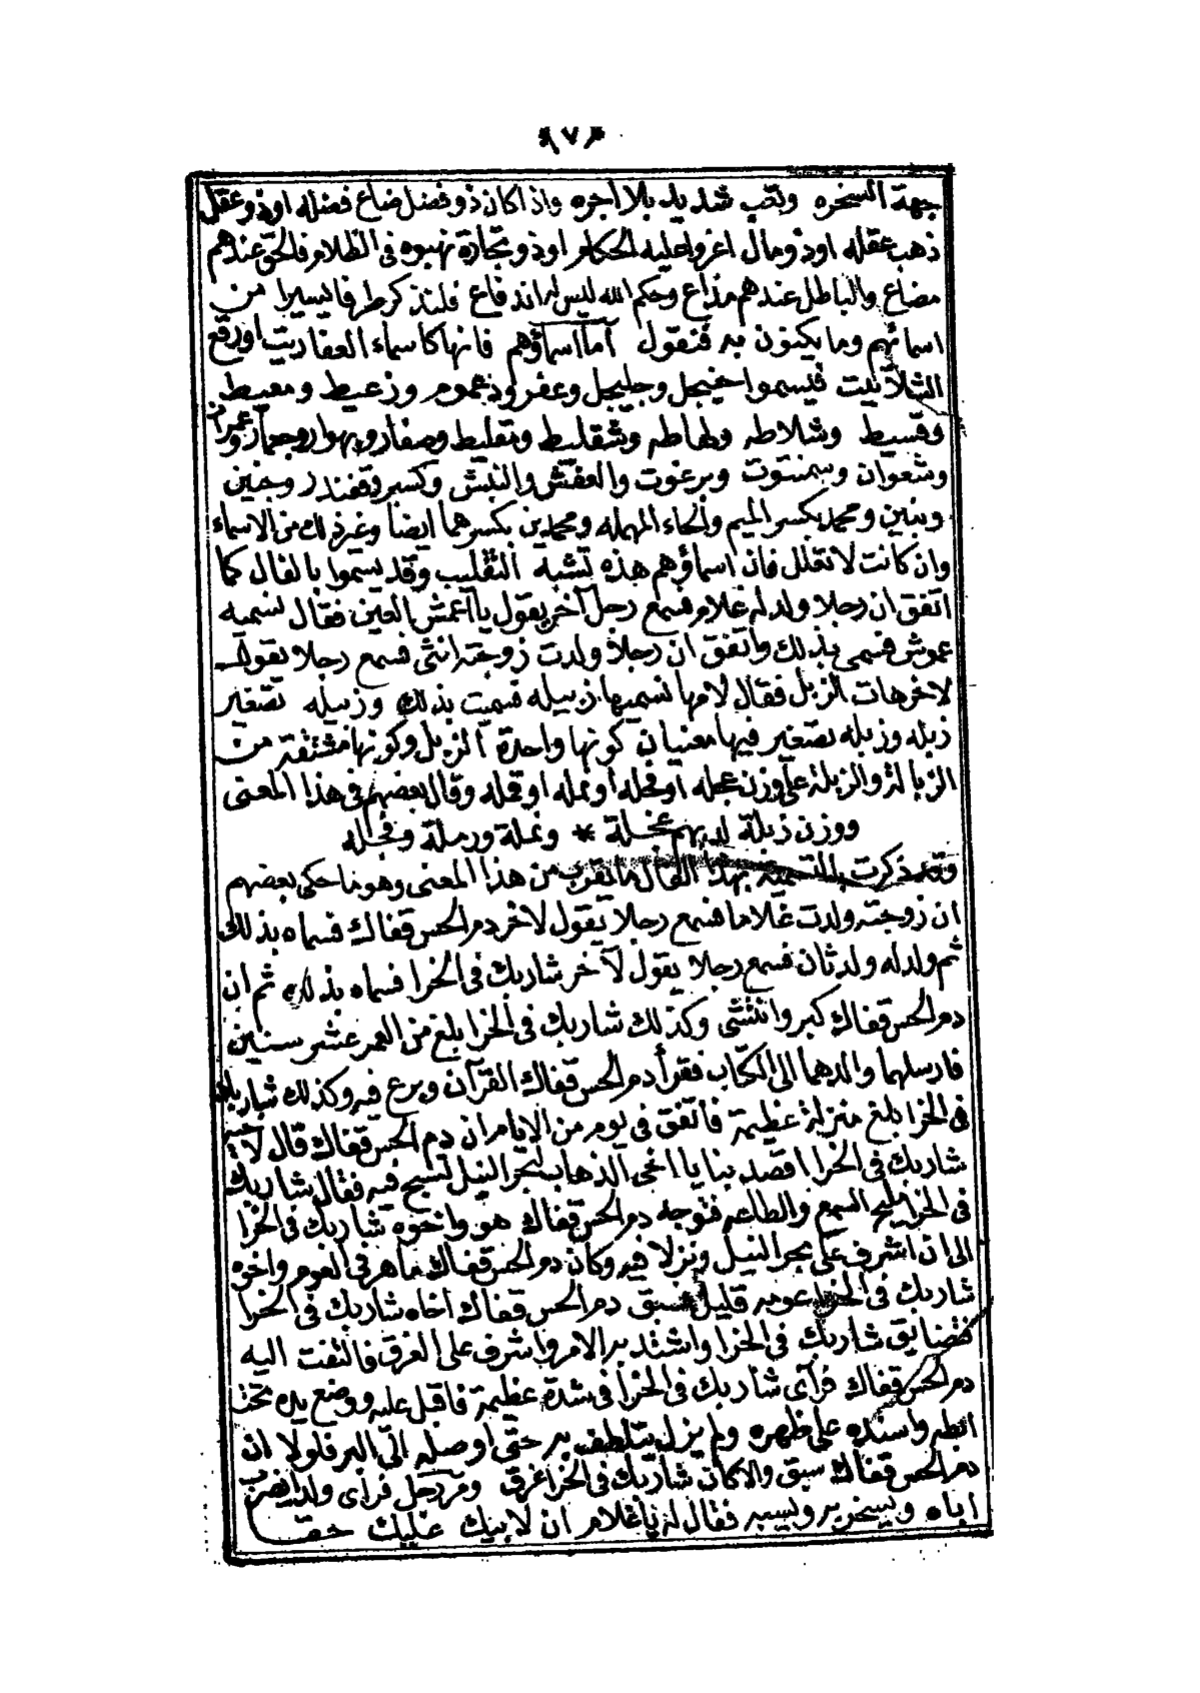 *(٧)*
جهة السخره وتعب شديد بلا اجره واذا كان ذو فضل ضاع فضله اوذو عقل
ذهب عقله اوذو مال اغروا عليه الحكام اوذو تجارة نهبوه فى الظلام فالحق عندهم
مضاع والباطل عندهم مذاع وحكم الله ليس له اندفاع فلنذكر طرفا يسيرا من
اسمائهم وما يكنون به فنقول أما اسماؤهم فانها كاسماء العفاريت اورقع
الشلاتيت فيسموا خنيجل وجليجل وعفر ودعموم وزعيط ومعيط
وقسيط وشلاطه ولهاطه وشقليط ومقليط وصفار وبهوار وجعار وعمران
وشعوان وسمنتوت وبرغوت والعفش والنبش وكسبر وقفندر وحنين
وبنين ومحمد بكسر الميم والحاء المهمله ومحمدين بكسرهما ايضا وغير ذلك من الاسماء
وان كانت لا تعلل فان اسماؤهم هذه تشبه التقليب وقد يسموا بالفال كما
اتفق ان رجلا ولد له غلام فسمع رجل آخر يقول يا أعمش العين فقال نسميه
عموش فسمى بذلك واتفق ان رجلا ولدت زوجته انثى فسمع رجلا يقول
لاخر هات الزبل فقال لامها نسميها زبيله فسميت بذلك وزبيله تصغير
زبله وزبله تصغير فيها معنيان كونها واحدة الزبل وكونها مشتقة من
الزبالة والزبلة على وزن عجله أو فجله أو نمله او قمله وقال بعضهم فى هذا المعنى
ووزن زبلة لديهم عجلة * ونملة ورملة وفجله
وقد ذكرت بالتسمية بهذا الفال ما يقرب من هذا المعنى وهو ما حكى بعضهم
ان زوجته ولدت غلاما فسمع رجلا يقول لاخر دم الحس قفاك فسماه بذلك
ثم ولد له ولد ثان فسمع رجلا يقول لآخر شاربك فى الخرا فسماه بذلك ثم ان
دم الحس قفاك كبر وانتشى وكذلك شاربك فى الخرا بلغ من العمر عشر سنين
فارسلهما والدهما الى الكتاب فقرأ دم الحس قفاك القرآن وبرع فيه وكذلك شاربك
فى الخرا بلغ منزلة عظيمة فاتفق فى يوم من الايام ان دم الحس قفاك قال لاخيه
شاربك فى الخرا اقصد بنا يا اخى الذهاب لبحر النيل لنسبح فيه فقال شاربك
فى الخرا بلح السمع والطاعه فتوجه دم الحس قفاك هو واخوه شاربك فى الخرا
الى ان اشرف على بحر النيل ونزلا فيه وكان دم الحس قفاك ماهر فى العوم واخوه
شاربك فى الخرا عومه قليل فسبق دم الحس قفاك اخاه شاربك فى الخرا
فتضايق شاربك فى الخرا واشتد به الامر واشرف على الغرق فالتفت اليه
دم الحس قفاك فرآى شاربك فى الخرا فى شدة عظيمة فاقبل عليه ووضع يده تحت
ابطه واسنده على ظهره ولم يزل يتلطف به حتى اوصله الى البر فلولا ان
دم الحس قفاك سبق والا كان شاربك فى الخرا غرق ومر رجل فراى ولدا يضرب
اباه ويسخر به ويسبه فقال له يا غلام ان لابيك عليك حقا